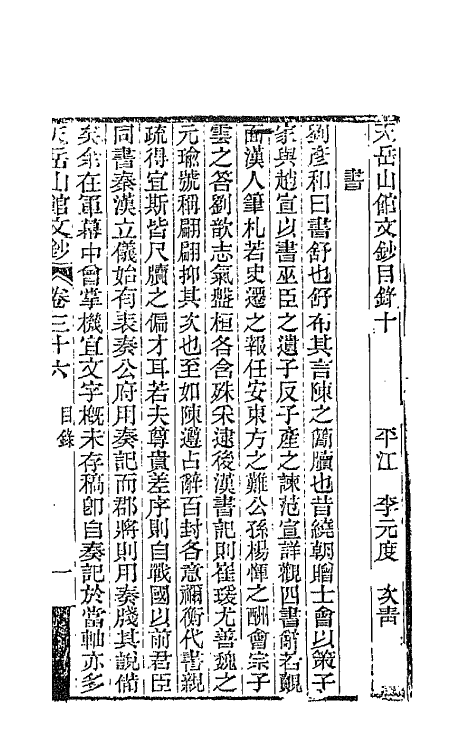 天岳山館文鈔目錄十　平江　李元度　次靑
書
劉彥和曰書舒也舒布其言陳之簡牘也昔繞朝贈士會以策子
家與趙宣以書巫臣之遺子反子產之諫范宣詳觀四書辭若覿
面漢人筆札若史遷之報任安東方之難公孫楊惲之酬會宗子
雲之答劉歆志氣盤桓各含殊采逮後漢書記則崔瑗尤善魏之
元瑜號稱翩翩抑其次也至如陳遵占辭百封各意禰衡代書親
疏得宜斯皆尺牘之偏才耳若夫尊貴差序則自戰國以前君臣
同書秦漢立儀始有表奏公府用奏記而郡將則用奏牋其說備
矣余在軍幕中曾掌機宜文字概未存稿卽自奏記於當軸亦多
天岳山館文鈔　卷三十六　目錄　一